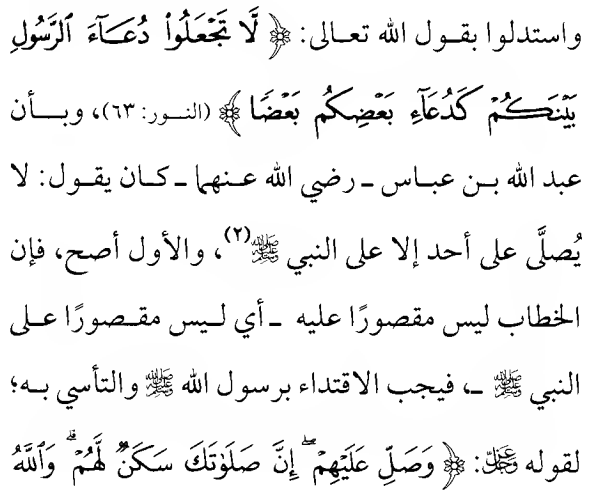 واستدلوا بقول الله تعالى: ﴿ لَّا تَجْعَلُوا۟ دُعَآءَ ٱلرَّسُولِ
بَيْنَكُمْ كَدُعَآءِ بَعْضِكُم بَعْضًا ﴾ (النور: ٦٣)، وبأن
عبد الله بن عباس ـ رضي الله عنهما ـ كان يقول: لا
يُصلَّى على أحد إلا على النبي ﷺ(٢)، والأول أصح، فإن
الخطاب ليس مقصورًا عليه ـ أي ليس مقصورًا على
النبي ﷺ ـ، فيجب الاقتداء برسول الله ﷺ والتأسي به؛
لقوله عز وجل: ﴿ وَصَلِّ عَلَيْهِمْ ۖ إِنَّ صَلَوٰتَكَ سَكَنٌ لَّهُمْ ۗ وَٱللَّهُ